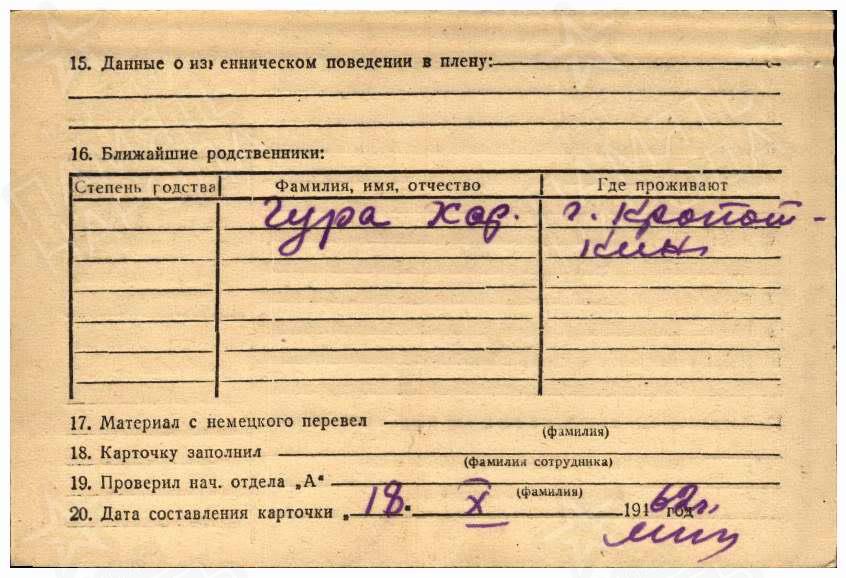 15. Данные о изменническом поведении в плену:
16. Ближайшие родственники:
Степень родства Фамилия, имя, отчество Где проживают
Гура Хар. г. Кропот-
кин
17. Материал с немецкого перевел
(фамилия)
18. Карточку заполнил
(фамилия сотрудника)
19. Проверил нач. отдела „А“
(фамилия)
20. Дата составления карточки „18“ X 1962г. год